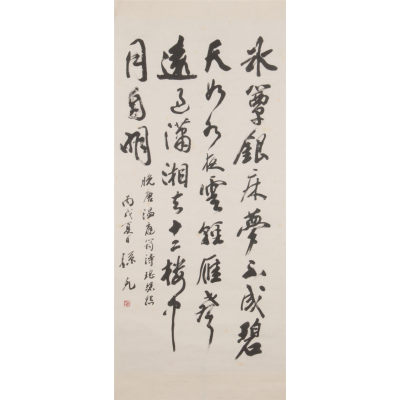 冰簟銀床夢不成碧
天如水夜雲輕雁聲
遠過瀟湘去十二樓中
月自明
晚唐溫庭筠詩瑤瑟怨
丙戌夏日